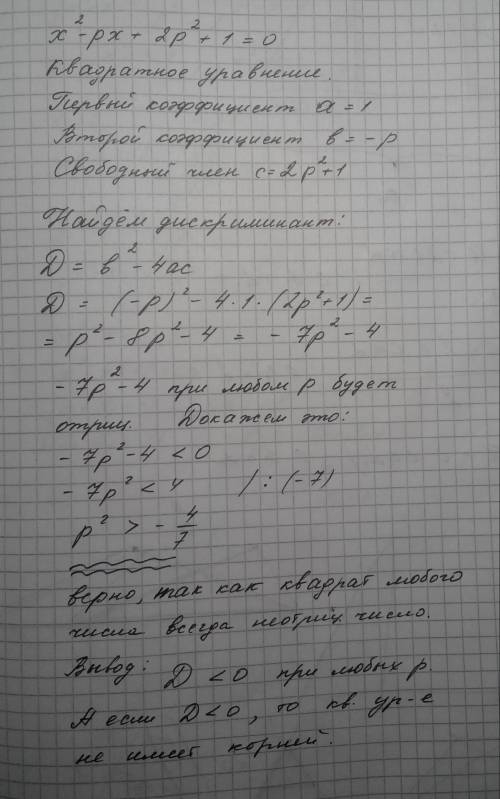 x² - px + 2p² + 1 = 0
Квадратное уравнение.
Первый коэффициент a = 1
Второй коэффициент в = -p
Свободный член c = 2p² + 1
Найдём дискриминант:
D = в² - 4ac
D = (-p)² - 4·1·(2p²+1) =
= p² - 8p² - 4 = -7p² - 4
-7p² - 4 при любом p будет
отриц. Докажем это:
-7p² - 4 < 0
-7p² < 4 / : (-7)
p² > - 4/7
верно, так как квадрат любого
числа всегда неотриц. число.
Вывод: D < 0 при любых p.
А если D < 0, то кв. ур-е
не имеет корней.